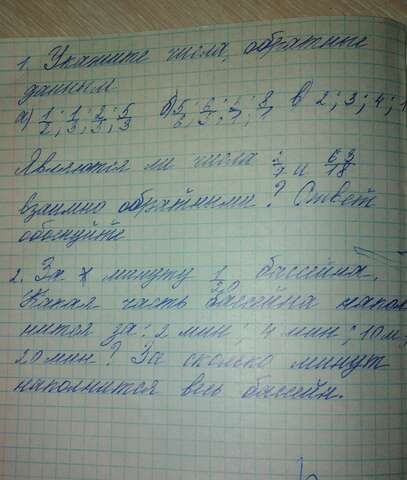 1. Укажите числа, обратные
данным
а) 1/2; 1/3; 2/3; 5/3 б) 5/6; 6/5; 8/1 в 2; 3; 4; 1
Являются ли числа 2/7 и 63/18
взаимно обратными? Ответ
обоснуйте
2. За минуту бассейна.
Какая часть бассейна напол
нится за: 2 мин; 4 мин; 10 м,
20 мин? За сколько минут
наполнится весь бассейн.